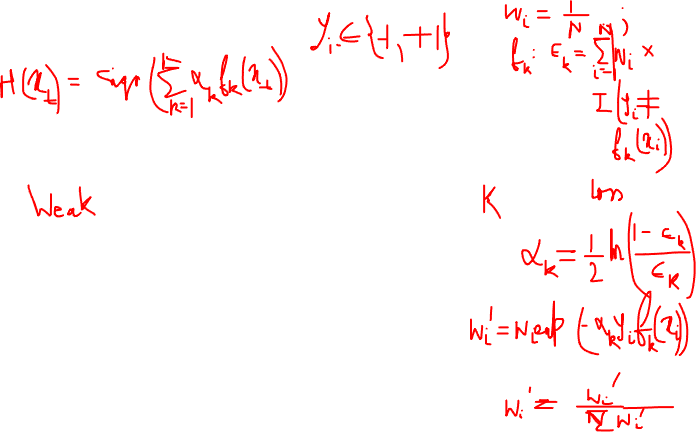 H(x_t) = sign(∑_{k=1}^{K} α_k f_k(x_t))
y_i ∈ {-1, +1}
w_i = 1/N ;
f_k : ϵ_k = ∑_{i=1}^{N} w_i ×
I(y_i ≠
f_k(x_i))
Weak
K
loss
α_k = 1/2 ln((1 - ϵ_k)/ϵ_k)
w_i' = w_i exp(-α_k y_i f_k(x_i))
w_i' = w_i'/∑ w_i'